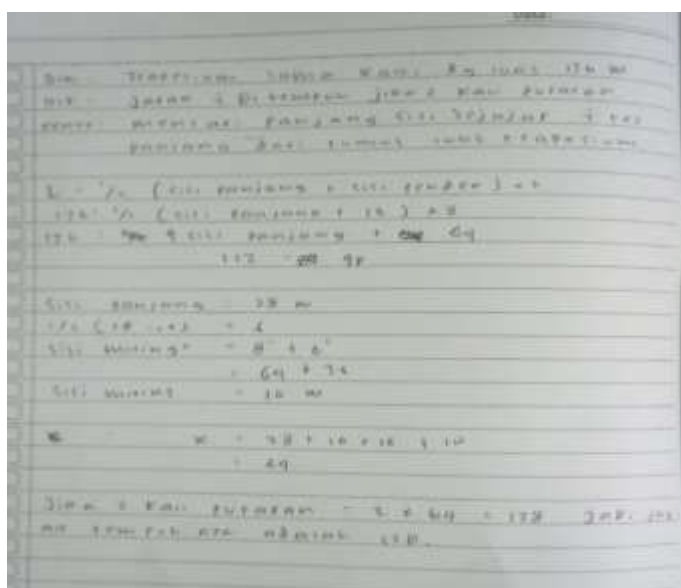 Dik : Trapesium sama kaki dg luas 176 m
Dit : Jarak ditempuh jika 2 kali putaran
mencari panjang sisi sejajar
panjang dari rumus luas trapesium
L = 1/2 (sisi panjang + sisi pendek) × t
176 = 1/2 (sisi panjang + 16) × 8
176 = 4 sisi panjang + 64
112 = 4p
Sisi panjang = 28 m
1/2 (28 - 16) = 6
Sisi miring² = 8² + 6²
= 64 + 36
Sisi miring = 10 m
K = 28 + 16 + 10 + 10
= 64
Jika 2 kali putaran = 2 × 64 = 128 Jadi
adalah 128.